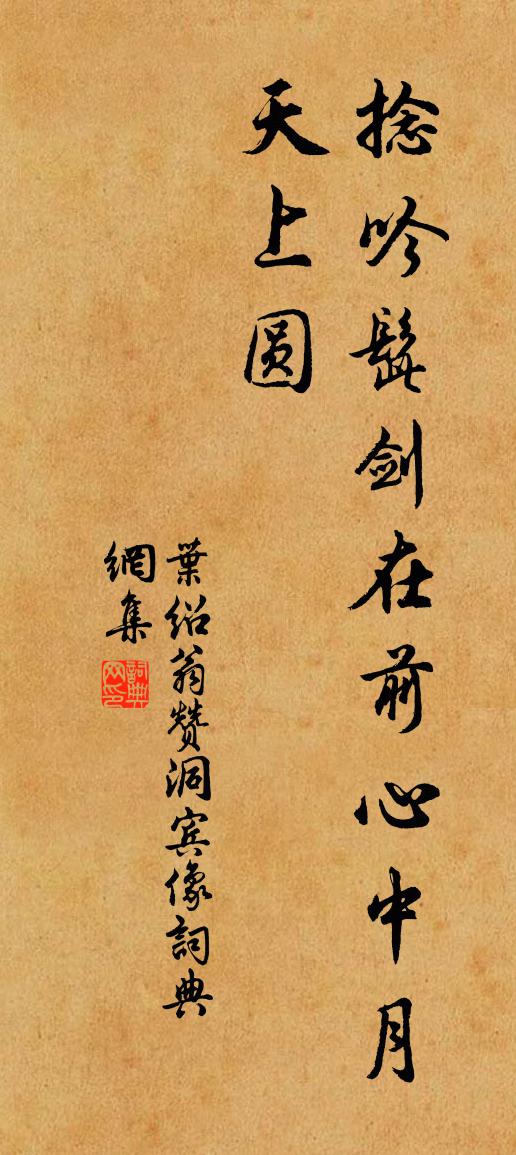 捻吟髭剑在前心中月
天上圆
葉绍翁赞洞宾像詞典
網集
詞典网印